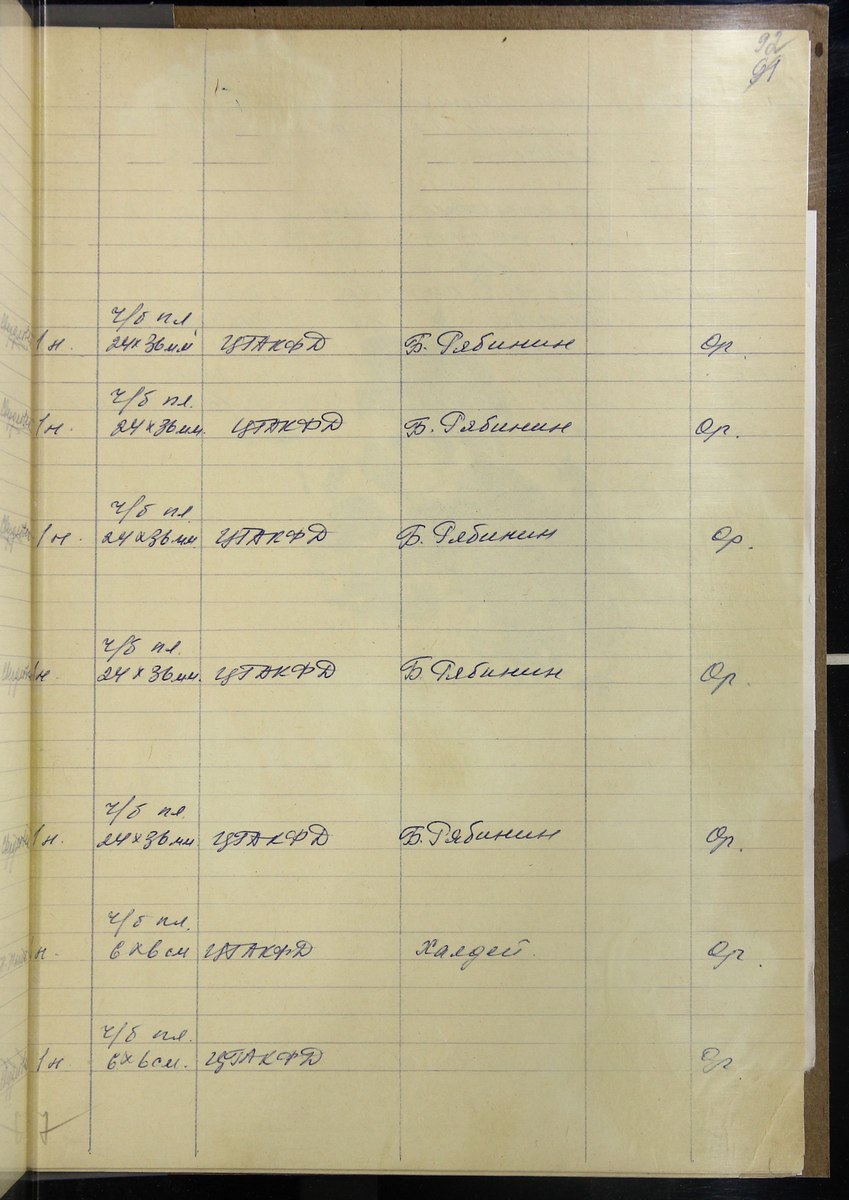 92
91
ч/б пл.
1 н. 24×36 мм ЦГАКФД Б. Рябинин Ор.
ч/б пл.
1 н. 24×36 мм. ЦГАКФД Б. Рябинин Ор.
ч/б пл.
1 н. 24×36 мм ЦГАКФД Б. Рябинин Ор.
ч/б пл.
1 н. 24×36 мм. ЦГАКФД Б. Рябинин Ор.
ч/б пл.
1 н. 24×36 мм ЦГАКФД Б. Рябинин Ор.
ч/б пл.
1 н. 6×6 см ЦГАКФД Халдей. Ор.
ч/б пл.
1 н 6×6 см. ЦГАКФД Ор.